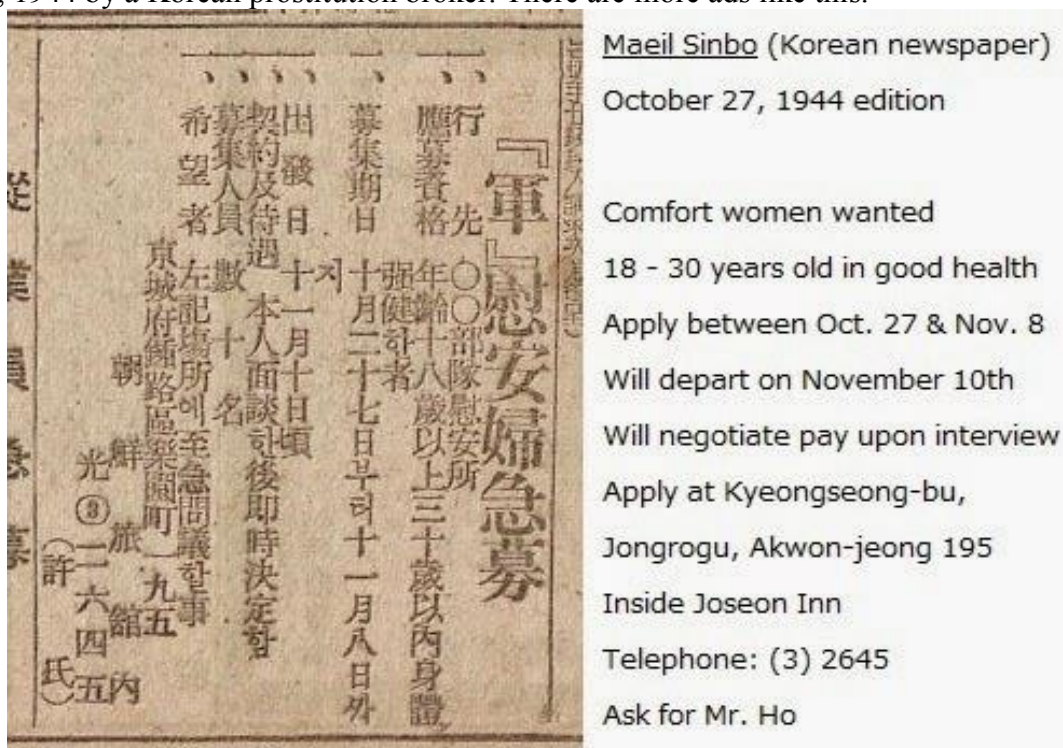 , 1944 by a Korean prostitution broker. There are more ads like this.
『軍』慰安婦急募
一、行先 〇〇部隊慰安所
一、應募資格 年齡十八歲以上三十歲以內身體
强健한者
一、募集期日 十月二十七日부터十一月八日까
지
一、出發日 十一月十日頃
一、契約及待遇 本人面談한後即時決定함
一、募集人員 數十名
一、希望者 左記場所에至急問議할事
京城府鍾路區樂園町一九五
朝鮮旅館內
光③二六四五
(許氏)
從業員急募
Maeil Sinbo (Korean newspaper)
October 27, 1944 edition
Comfort women wanted
18 - 30 years old in good health
Apply between Oct. 27 & Nov. 8
Will depart on November 10th
Will negotiate pay upon interview
Apply at Kyeongseong-bu,
Jongrogu, Akwon-jeong 195
Inside Joseon Inn
Telephone: (3) 2645
Ask for Mr. Ho